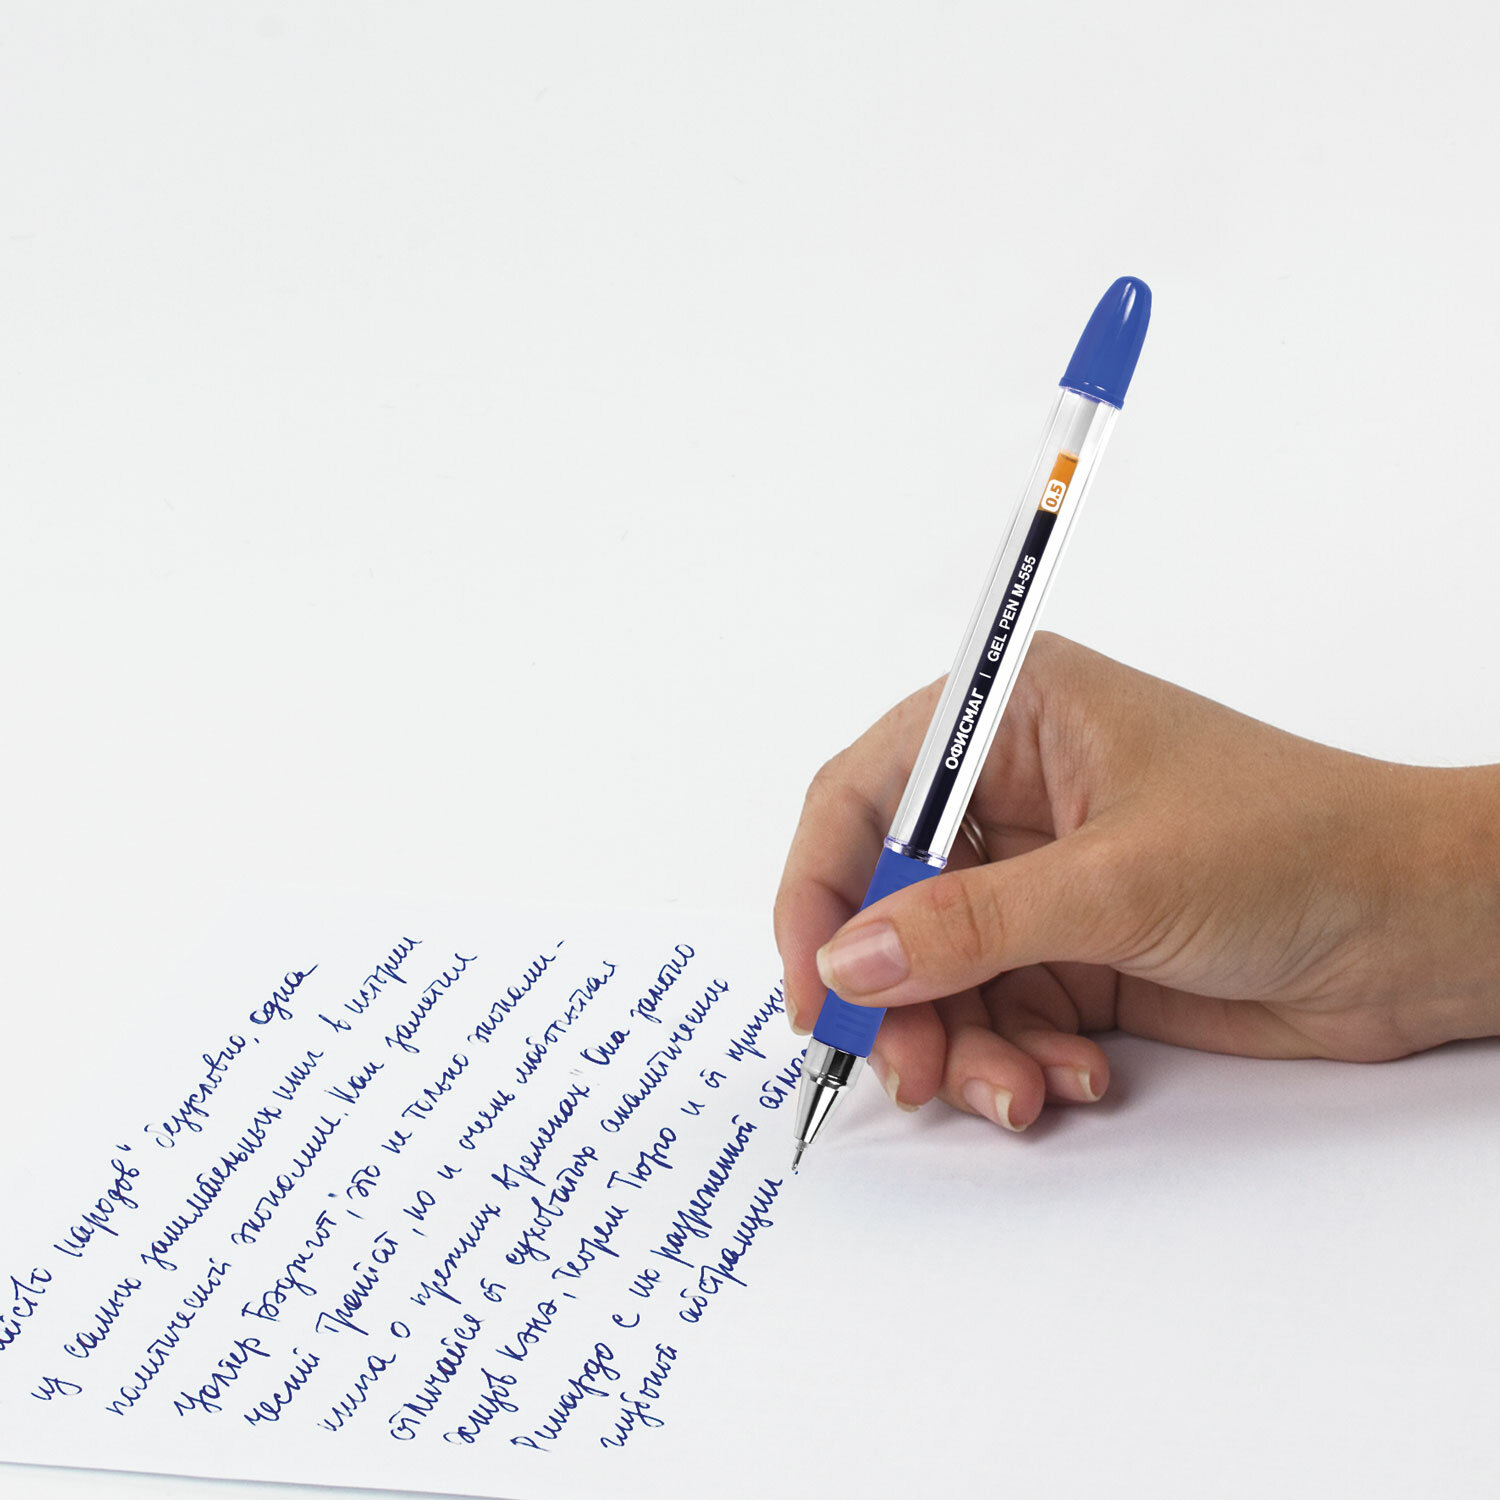 0.5
ОФИСМАГ | GEL PEN M-555
народов" безусловно, одна
из самых занимательных книг в истории
политической экономии. Как заметил
Уолтер Бэджгот, "это не только экономи-
ческий трактат, но и очень любопытная
книга о прежних временах". Она заметно
отличайся от суховатых аналитических
Кэнэ, Теорем Тюрго и от
Рикардо с их разреженной
глубокой абстракции